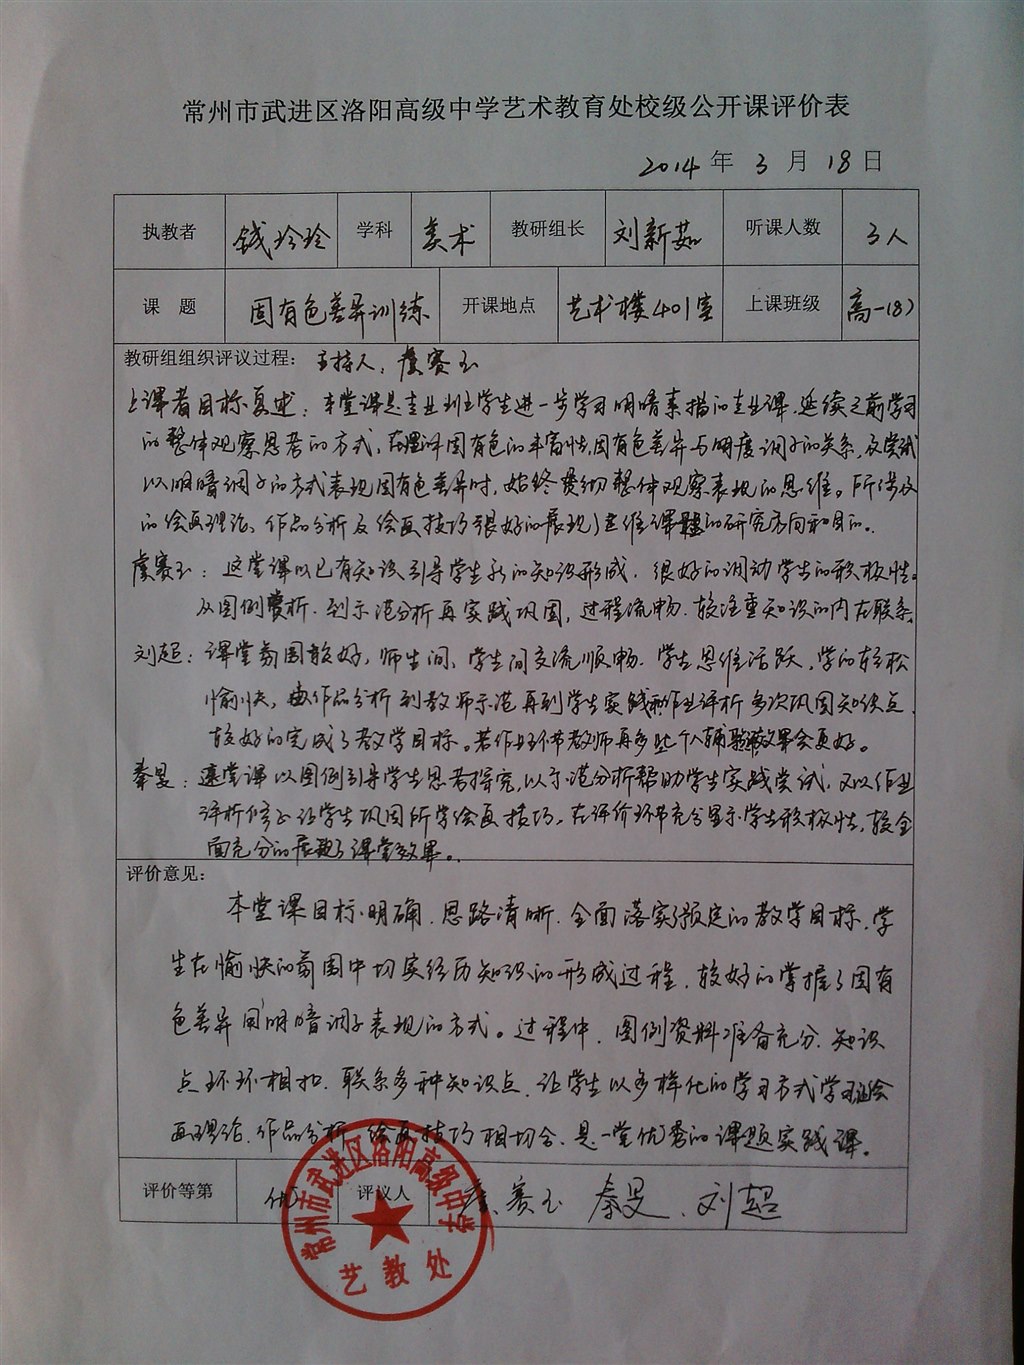 常州市武进区洛阳高级中学艺术教育处校级公开课评价表
2014年3月18日
执教者 钱玲玲 学科 美术 教研组长 刘新茹 听课人数 3人
课题 固有色差异训练 开课地点 艺术楼401室 上课班级 高一(8)
教研组组织评议过程：主持人：虞赛玉
上课者目标复述：本堂课是专业班学生进一步学习明暗素描的专业课，延续之前学习
的整体观察思考的方式，在理解固有色的丰富性，固有色差异与明度调子的关系，及尝试
以明暗调子的方式表现固有色差异时，始终贯彻整体观察表现的思维。所涉及
的绘画理论、作品分析及绘画技巧很好的展现了思维课题的研究方向和目的。
虞赛玉：这堂课以已有知识引导学生新的知识形成，很好的调动学生的积极性。
从图例赏析，到示范分析再实践巩固，过程流畅，较注重知识的内在联系。
刘超：课堂氛围较好，师生间、学生间交流顺畅，学生思维活跃，学的轻松
愉快，由作品分析到教师示范再到学生实践和作业评析多次巩固知识点，
较好的完成了教学目标。若作业环节教师再多些个人辅导效果会更好。
秦旻：这堂课以图例引导学生思考探究，以示范分析帮助学生实践尝试，又以作业
评析修正让学生巩固所学绘画技巧。在评价环节充分显示学生积极性，较全
面充分的展现了课堂效果。
评价意见：
本堂课目标明确，思路清晰，全面落实了预定的教学目标，学
生在愉快的氛围中切实经历知识的形成过程，较好的掌握了固有
色差异用明暗调子表现的方式。过程中，图例资料准备充分，知识
点环环相扣，联系多种知识点，让学生以多样化的学习方式学习绘
画理论，作品分析，绘画技巧相切合，是一堂优秀的课题实践课。
评价等第 优 评议人 虞赛玉 秦旻、刘超
常州市武进区洛阳高级中学
艺教处